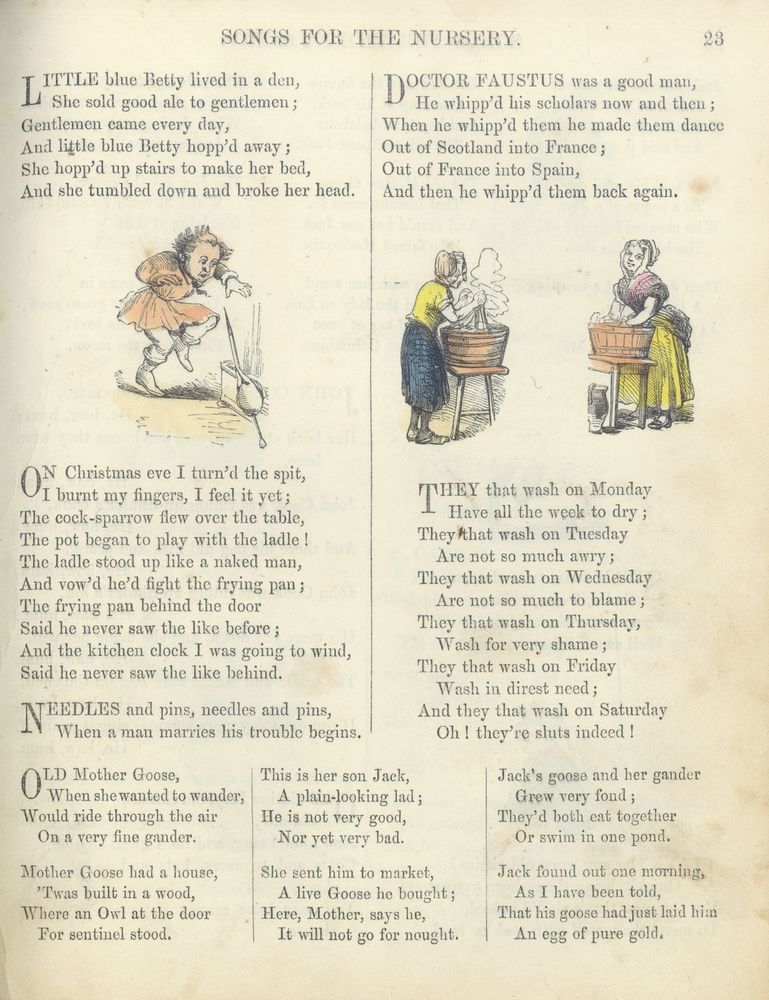 SONGS FOR THE NURSERY. 23
LITTLE blue Betty lived in a den,
She sold good ale to gentlemen;
Gentlemen came every day,
And little blue Betty hopp'd away;
She hopp'd up stairs to make her bed,
And she tumbled down and broke her head.
ON Christmas eve I turn'd the spit,
I burnt my fingers, I feel it yet;
The cock-sparrow flew over the table,
The pot began to play with the ladle!
The ladle stood up like a naked man,
And vow'd he'd fight the frying pan;
The frying pan behind the door
Said he never saw the like before;
And the kitchen clock I was going to wind,
Said he never saw the like behind.
NEEDLES and pins, needles and pins,
When a man marries his trouble begins.
DOCTOR FAUSTUS was a good man,
He whipp'd his scholars now and then;
When he whipp'd them he made them dance
Out of Scotland into France;
Out of France into Spain,
And then he whipp'd them back again.
THEY that wash on Monday
Have all the week to dry;
They that wash on Tuesday
Are not so much awry;
They that wash on Wednesday
Are not so much to blame;
They that wash on Thursday,
Wash for very shame;
They that wash on Friday
Wash in direst need;
And they that wash on Saturday
Oh! they're sluts indeed!
OLD Mother Goose,
When she wanted to wander,
Would ride through the air
On a very fine gander.
Mother Goose had a house,
'Twas built in a wood,
Where an Owl at the door
For sentinel stood.
This is her son Jack,
A plain-looking lad;
He is not very good,
Nor yet very bad.
She sent him to market,
A live Goose he bought;
Here, Mother, says he,
It will not go for nought.
Jack's goose and her gander
Grew very fond;
They'd both eat together
Or swim in one pond.
Jack found out one morning,
As I have been told,
That his goose had just laid him
An egg of pure gold.